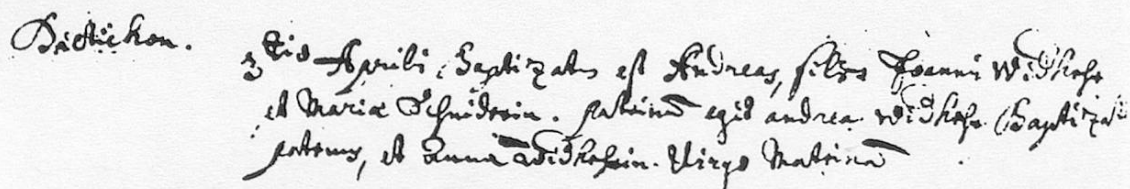 Dietickon.
3tia Aprilis Baptizatus est Andreas, filius Joannis Widkeher
et Mariæ Schniderin. patrinū egit andreas Widkeher Baptizati
patruus, et Anna Widkeherin. Virgo Matrinā